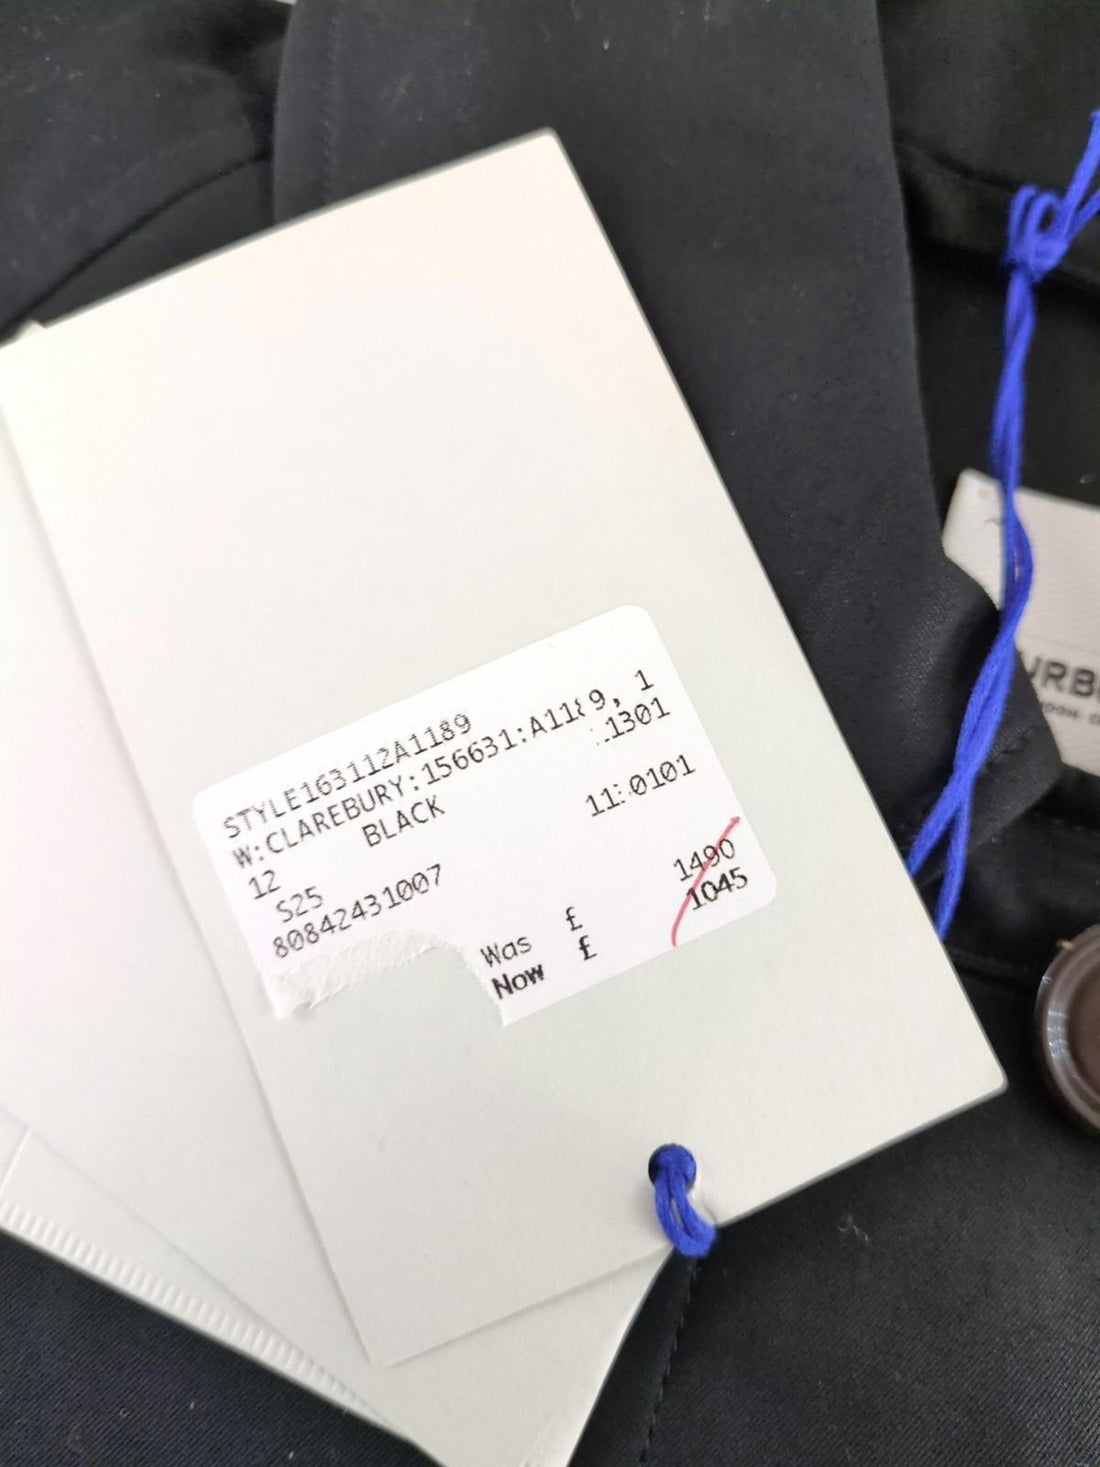 STYLE163112A1189
W:CLAREBURY:156631:A1189, 1
BLACK 1301
12
S25 11:0101
80842431007
Was £ 1490
Now £ 1045
URB